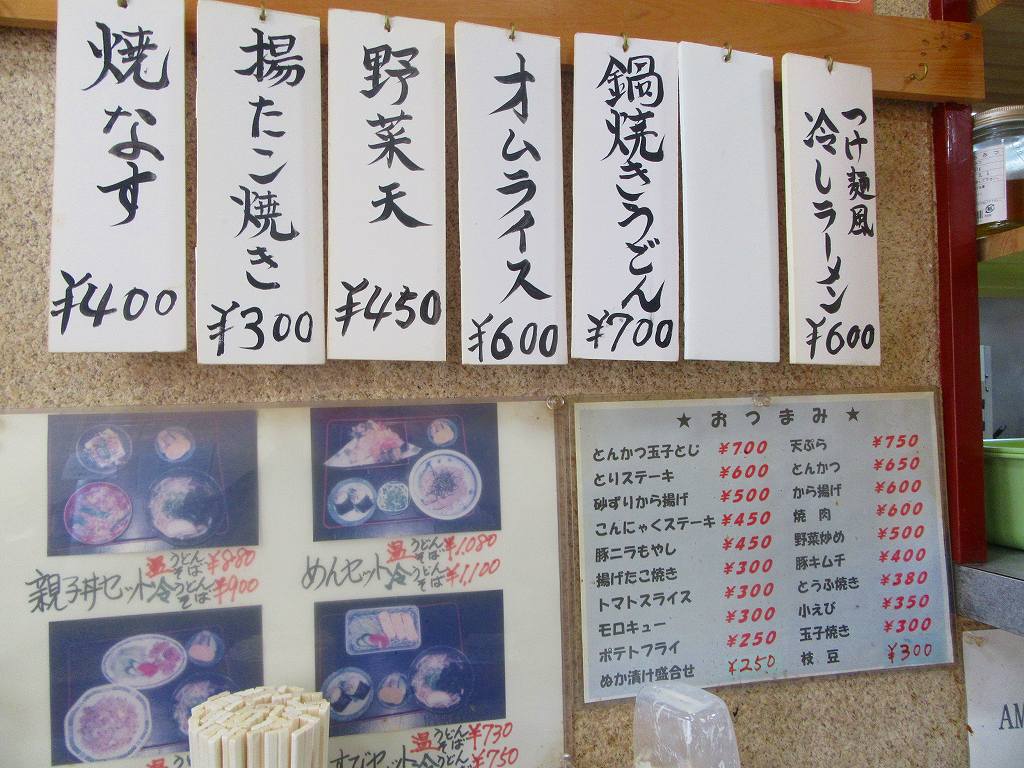 焼なす
¥400
揚たこ焼き
¥300
野菜天
¥450
オムライス
¥600
鍋焼きうどん
¥700
つけ麺風
冷しラーメン
¥600
温うどんそば¥880
親子丼セット冷うどんそば¥900
温うどんそば¥1.080
めんセット冷うどんそば¥1,100
温
温うどんそば¥730
セット冷うどん¥750
★おつまみ★
とんかつ玉子とじ ¥700
とりステーキ ¥600
砂ずりから揚げ ¥500
こんにゃくステーキ ¥450
豚ニラもやし ¥450
揚げたこ焼き ¥300
トマトスライス ¥300
モロキュー ¥300
ポテトフライ ¥250
ぬか漬け盛合せ ¥250
天ぷら ¥750
とんかつ ¥650
から揚げ ¥600
焼肉 ¥600
野菜炒め ¥500
豚キムチ ¥400
とうふ焼き ¥380
小えび ¥350
玉子焼き ¥300
枝豆 ¥300
AM